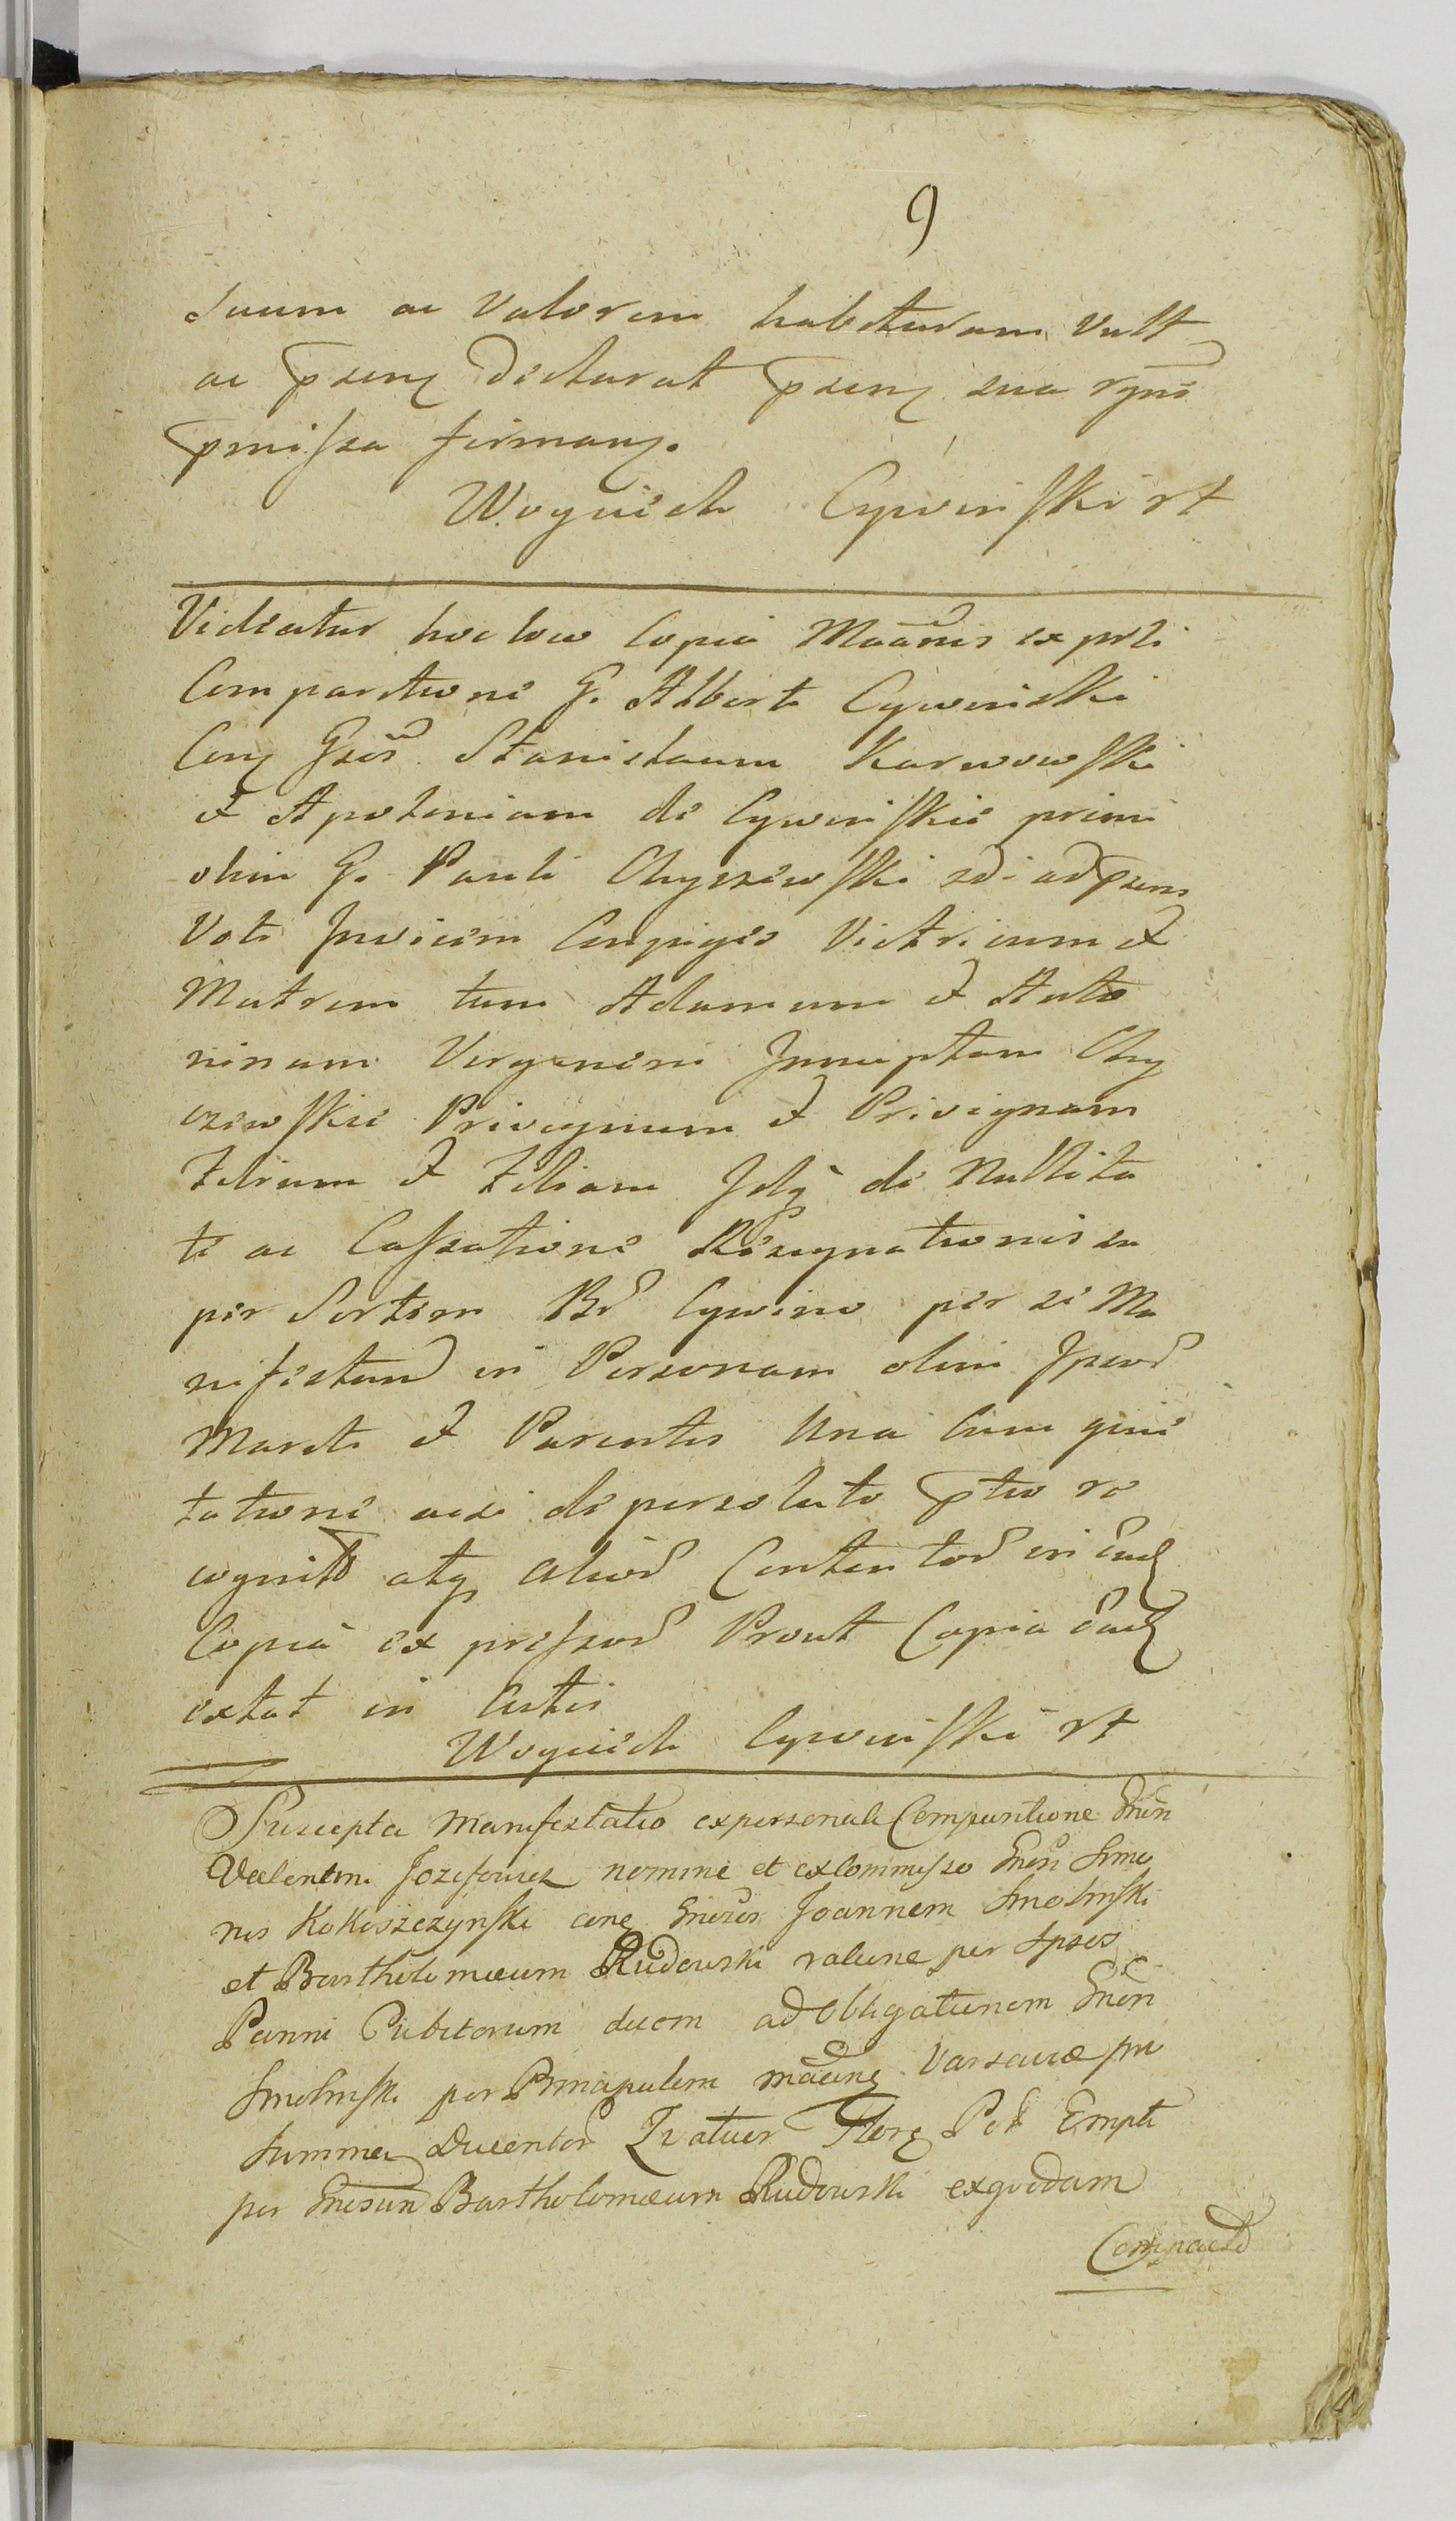 9
suum ac Valorem habituram Vult
ac psenz Declarat psenz sua
pmissa firmanz.
Woyciech Cywinski
Videatur hoc loco Copia Maãonis ex prli
Comparitione G. Alberti Cywinski
Conz Gsos Stanislaum Karwowski
et Apoloniam de Cywinskie primi
olim G. Pauli Chyczewski 2di ad psens
Voti Invicem Conjuges Victricum et
Matrem tum Adamum et Anto
ninam Virginem Innuptam Chy
czewskie Privignum et Privignam
Filium et Filiam de Nullita
te ac Cassatione Resignationis su
per Sortem Br Cywino per se Ma
nifestand in Personam olim Ipsor
Mariti et Parentis Una Cum quie
tatione acsi de persoluto ptio re
cognit atq alior Contentor in ead
Copia expressor Prout Copia ead
extat in Actis
Woyciech Cywinski
Suscepta Manifestatio ex personali Comparitione Gnen
Valentini Jozefowicz nomine et ex Commisso Gnen Simo
nis Kokoszczynski conz Gneros Joannem Smolinski
et Bartholomaeum Rudowski ratione per Ipsos
Panni Cubitorum duom ad Obligationem Gnen
Smolinski per Principalem Varsaviae pro
Summa Ducentor Quatuor Flor Pol Empti
per Gnesum Bartholomaeum Rudowski ex quodam
Compacto